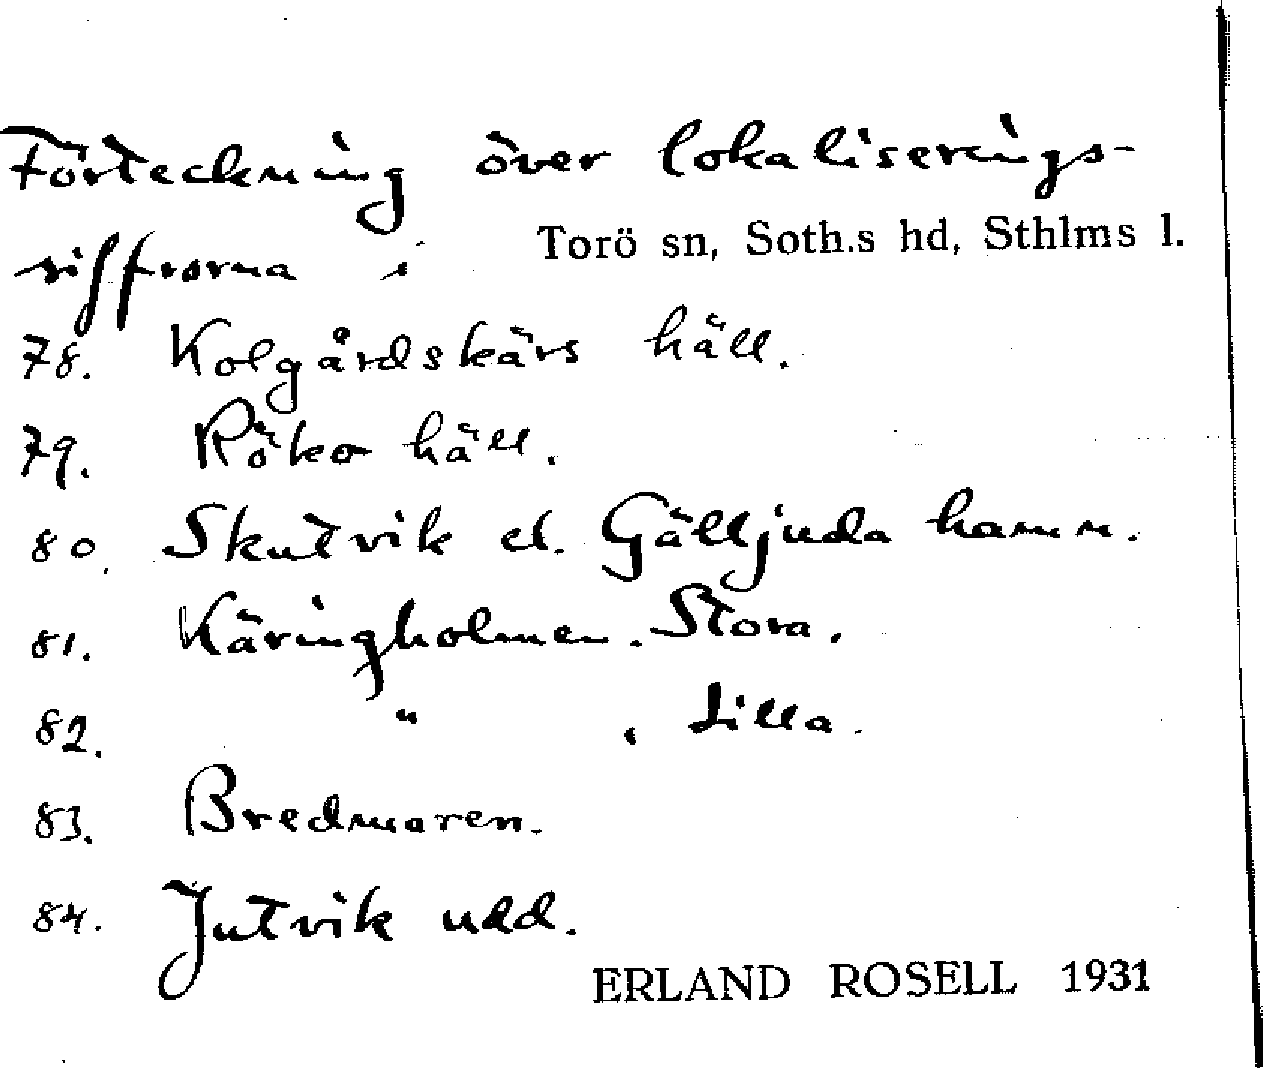 Förteckning över lokaliserings-
siffrorna i Torö sn, Soth.s hd, Sthlms l.
78. Kolgårdskärs häll.
79. Röko häll.
80. Skutvik el. Gälljuda hamn.
81. Käringholmen. Stora.
82. " , Lilla.
83. Bredmaren.
84. Jutvik udd.
ERLAND ROSELL 1931